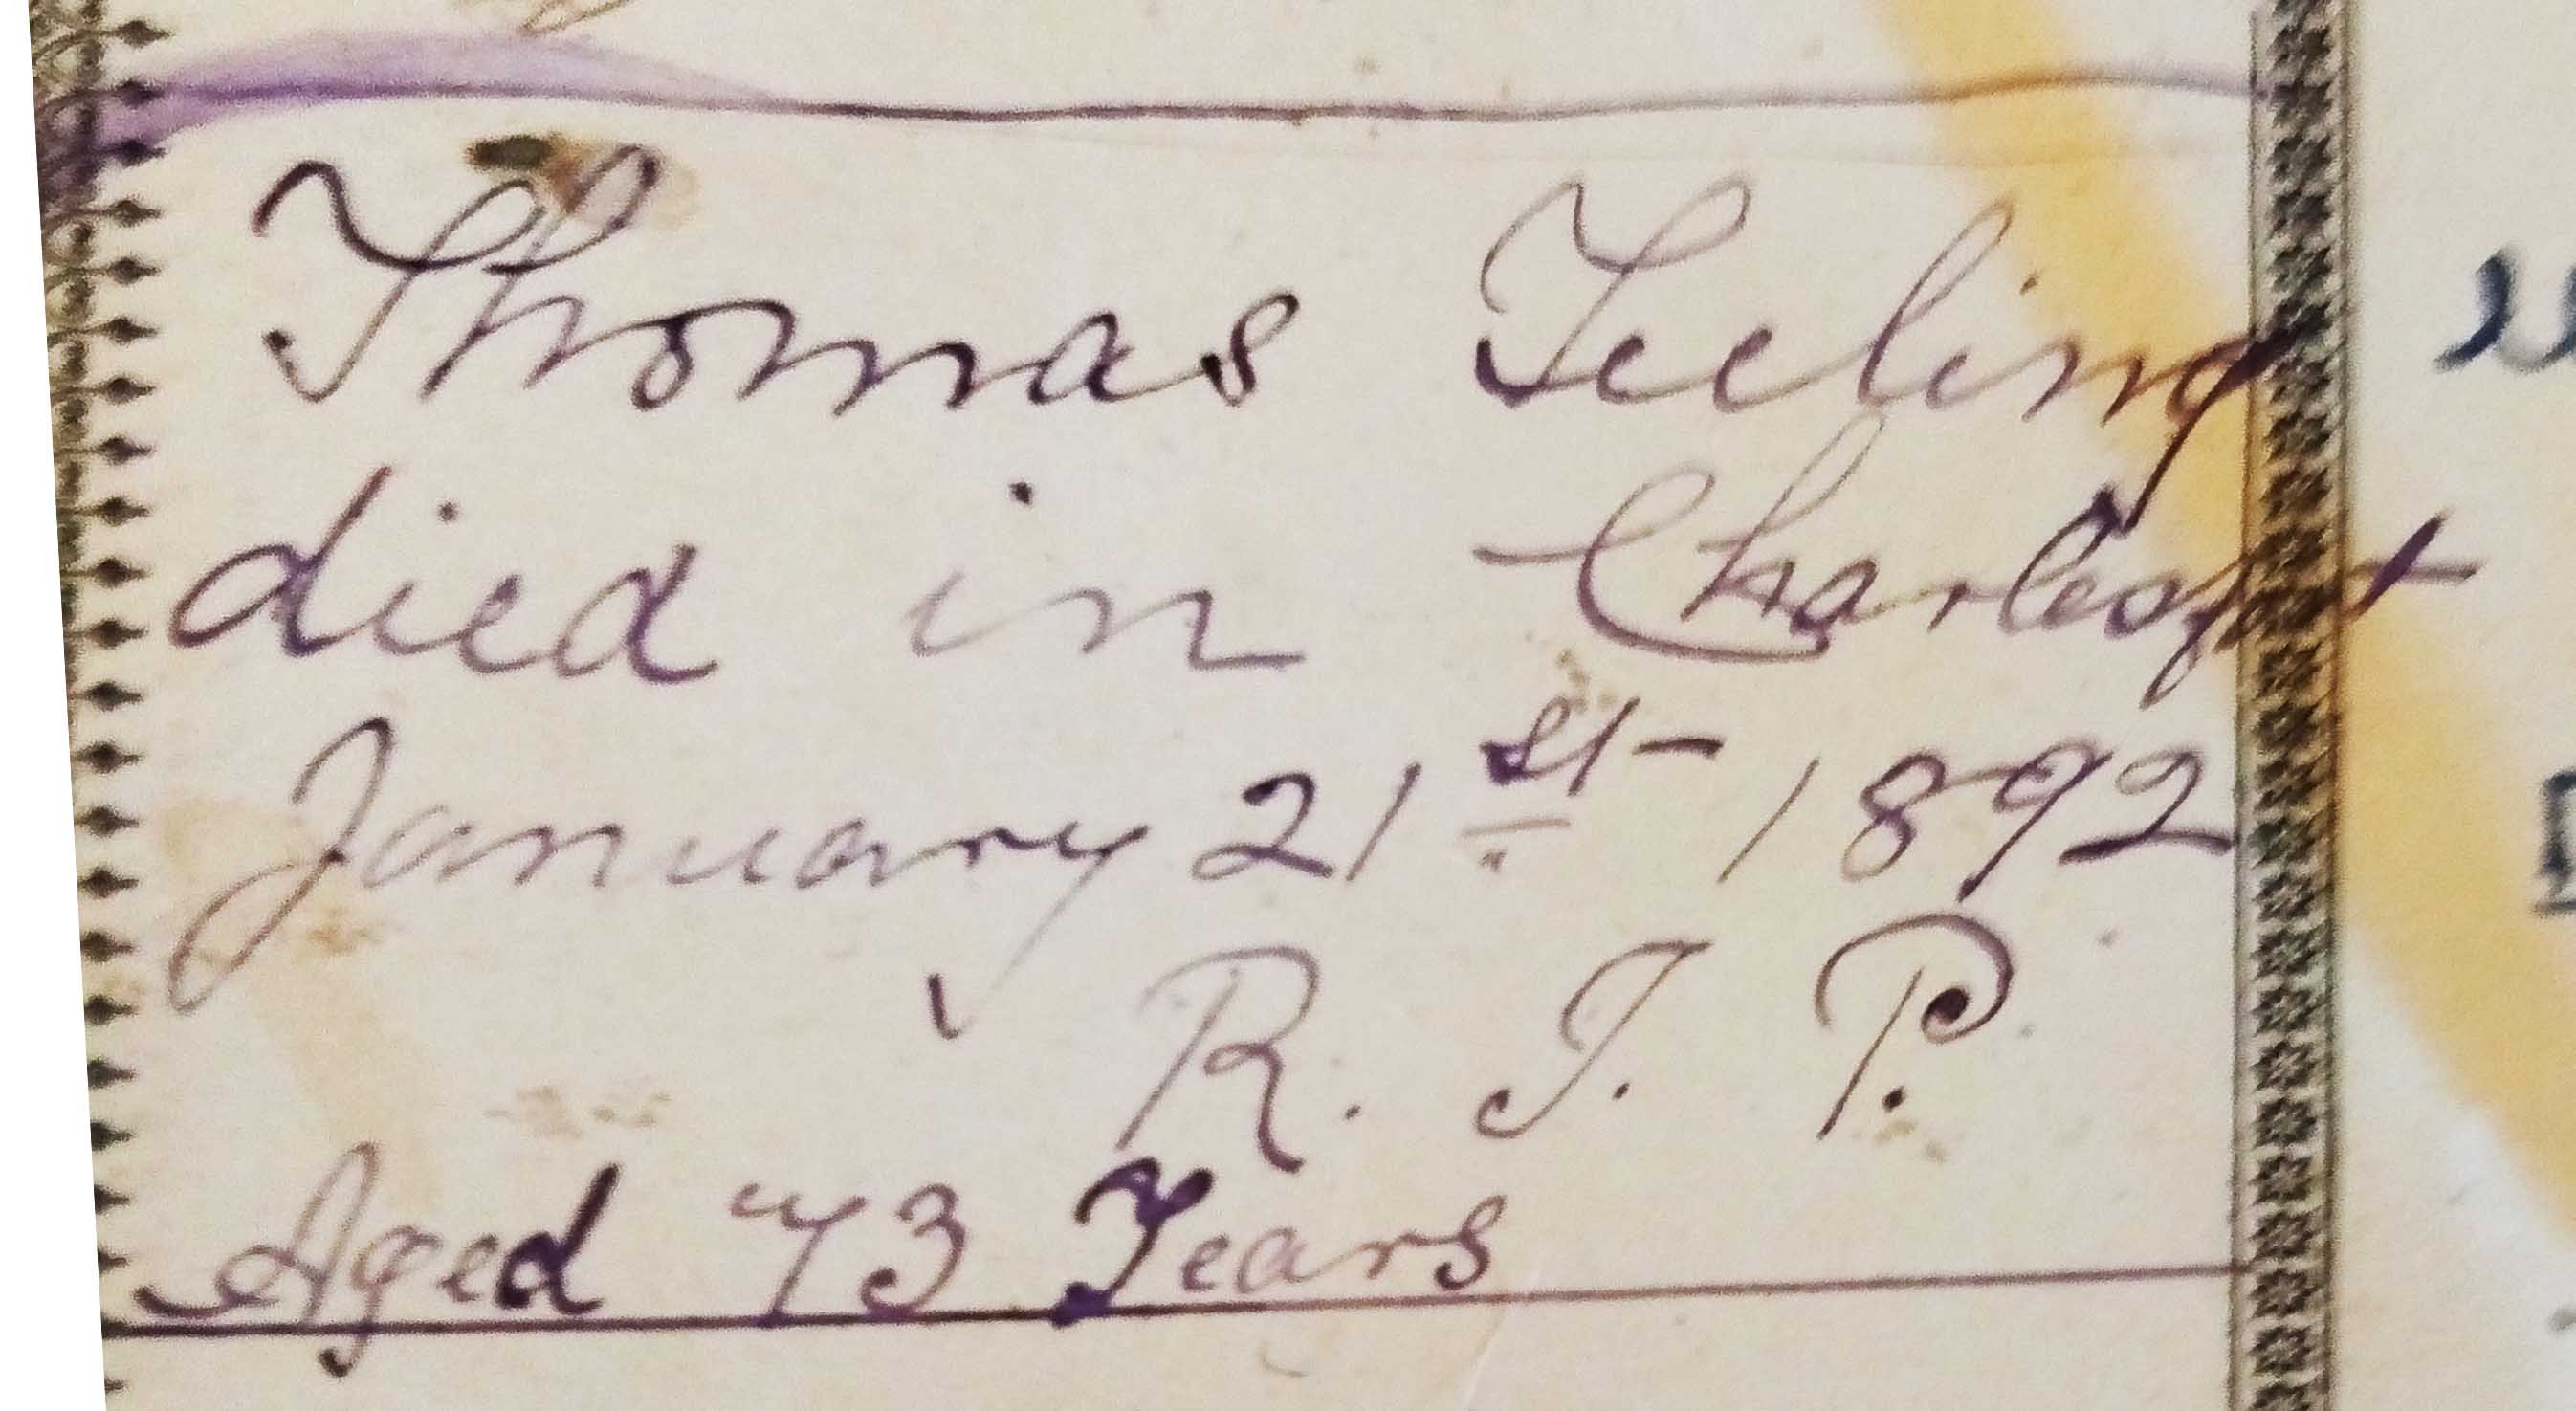 Thomas Teeling
died in Charlesfort
January 21st 1892
R. I. P.
Aged 73 Years